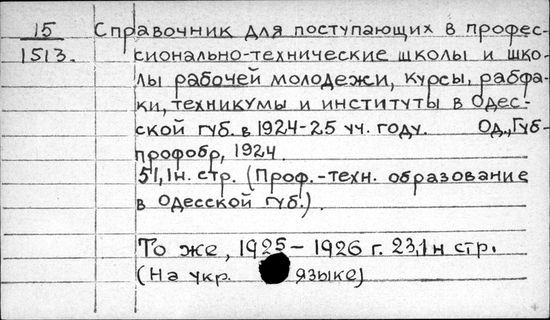 15
1513.
Справочник для поступающих в профес-
сионально-технические школы и шко-
лы рабочей молодежи, курсы, рабфа-
ки, техникумы и институты в Одес-
ской губ. в 1924-25 уч. году. Од., „Губ-
профобр, 1924.
51,1н. стр. (Проф.-техн. образование
в Одесской губ.).
То же, 1925 – 1926 г. 23,1н стр.
(На укр. языке)